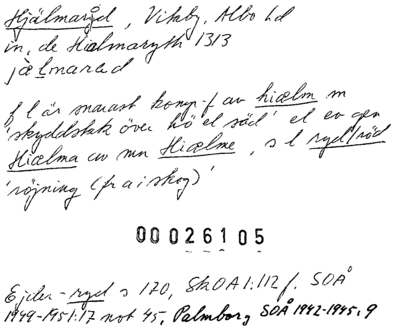 Hjälmaröd, Vitaby, Albo hd
in, de Hiælmaryth 1313
jälmaröd
f l är snarast komp-f av hiælm m
'skyddstak över hö el säd' el ev gen
Hiælma av mn Hiælme, s l ryd/röd
'röjning (fr a i skog)'
00026105
Ejder-ryd s 170, SkOA 1:112 f. SOÅ
1949-1951:17 not 45, Palmborg SOÅ 1942-1945:9